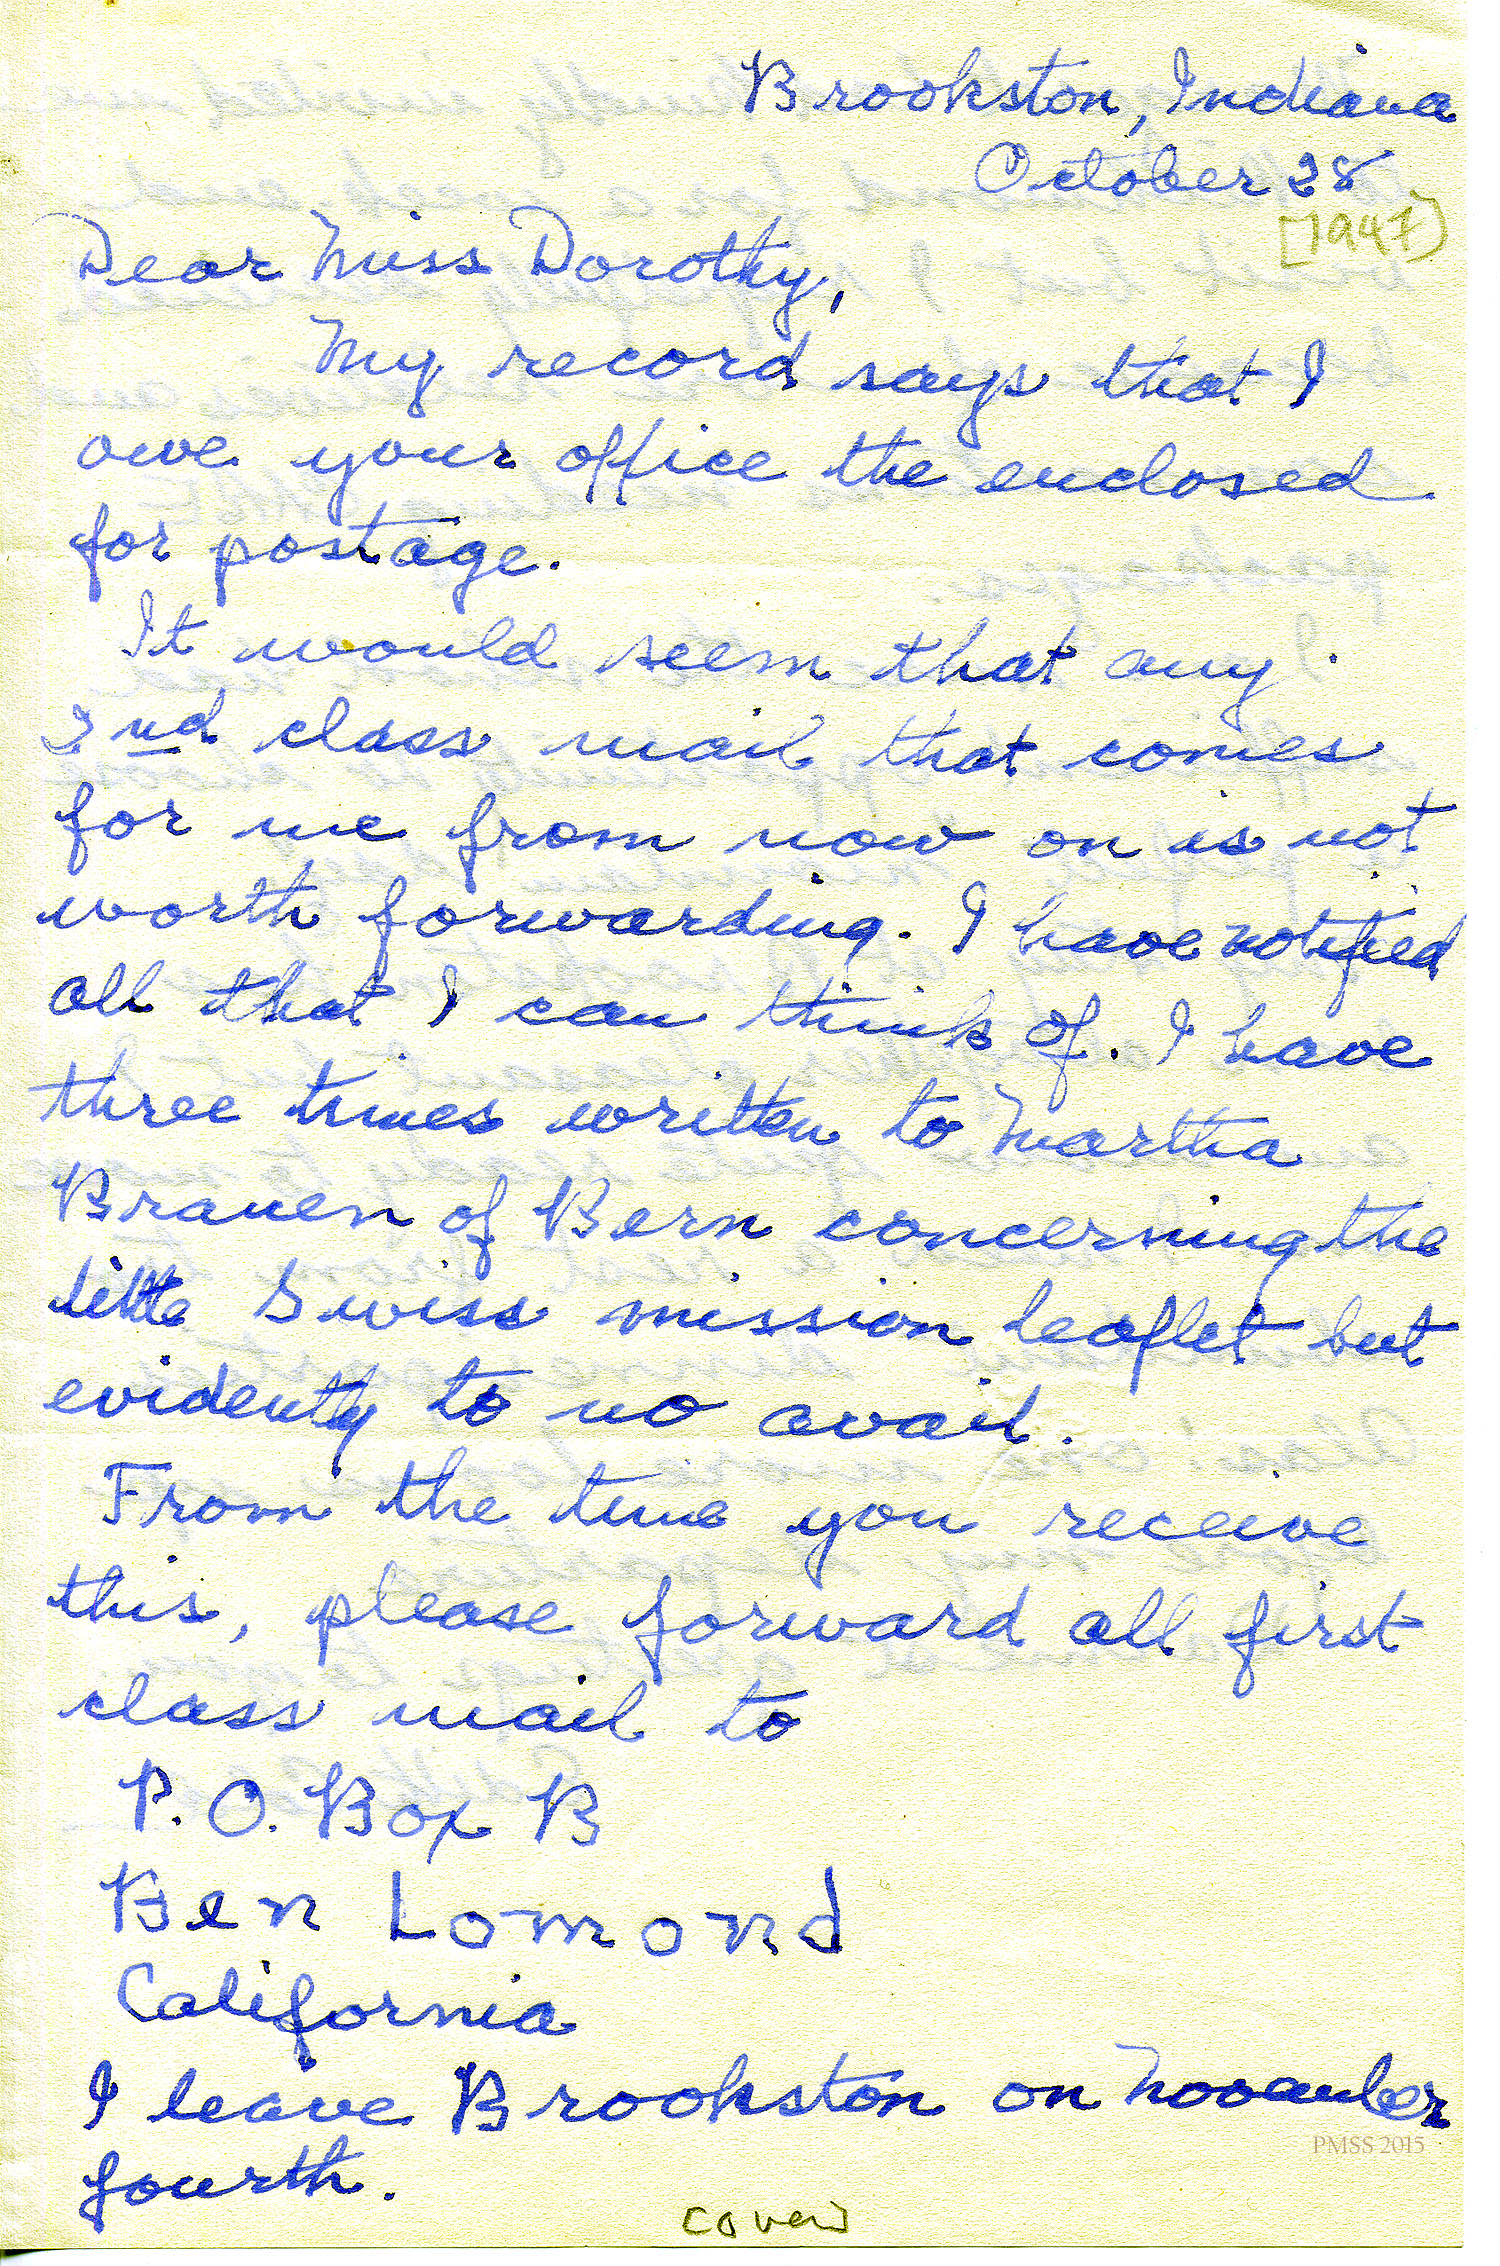 Brookston, Indiana
October 28
[1947]
Dear Miss Dorothy,
My record says that I
owe your office the enclosed
for postage.
It would seem that any
2nd class mail that comes
for me from now on is not
worth forwarding. I have notified
all that I can think of. I have
three times written to Martha
Brauen of Bern concerning the
little Swiss mission leaflet but
evidently to no avail.
From the time you receive
this, please forward all first
class mail to
P.O. Box B
Ben Lomond
California
I leave Brookston on November
fourth.
PMSS 2015
cover